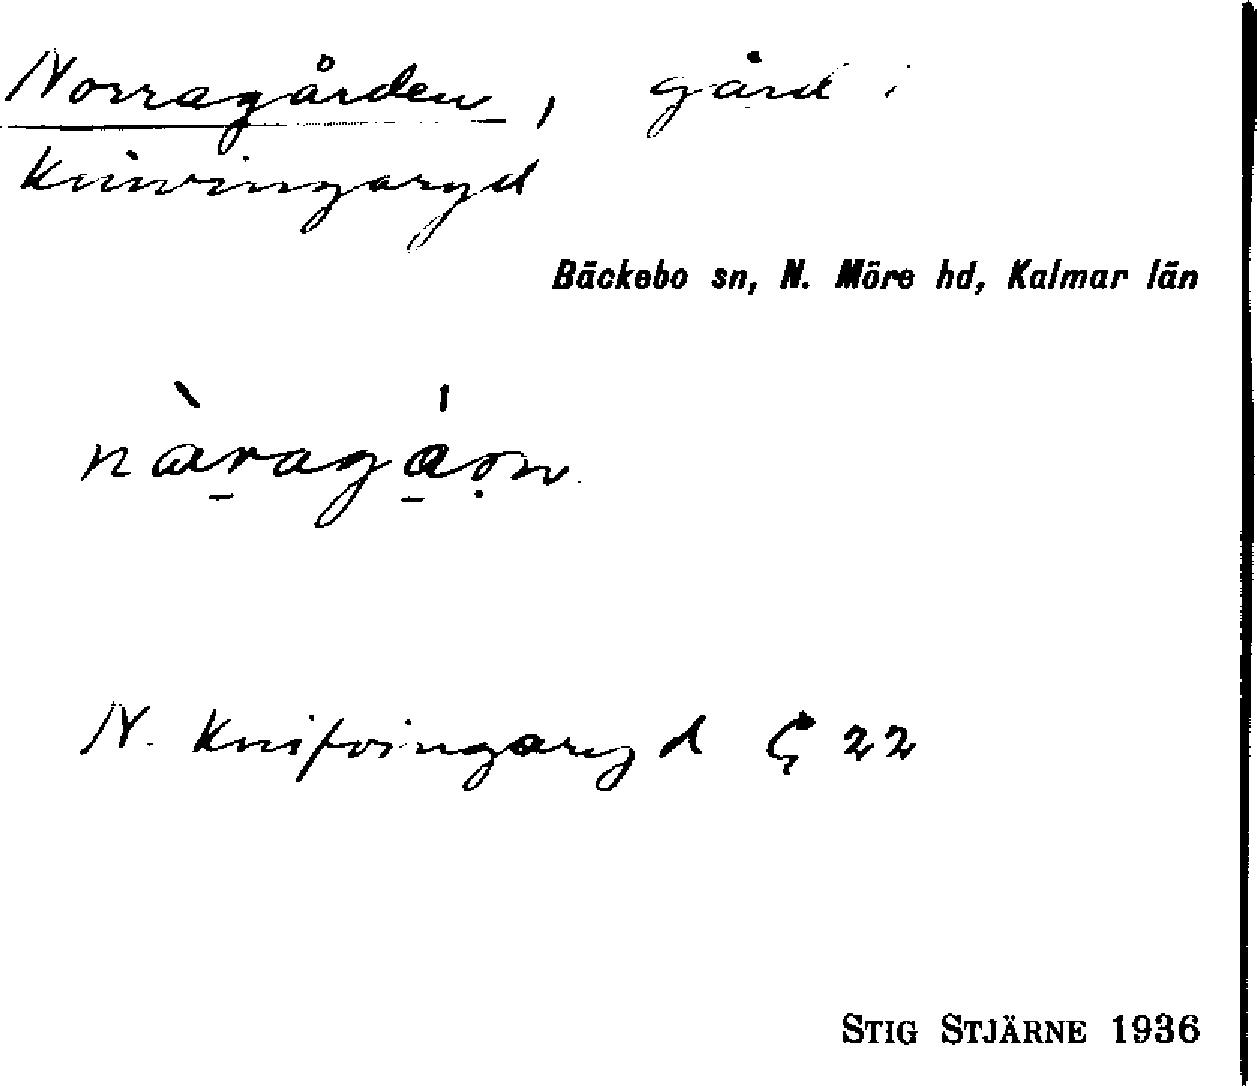 Norragården, gård i
Knivingaryd
Bäckebo sn, N. Möre hd, Kalmar län
N. Knifvingaryd ζ 22
STIG STJÄRNE 1936